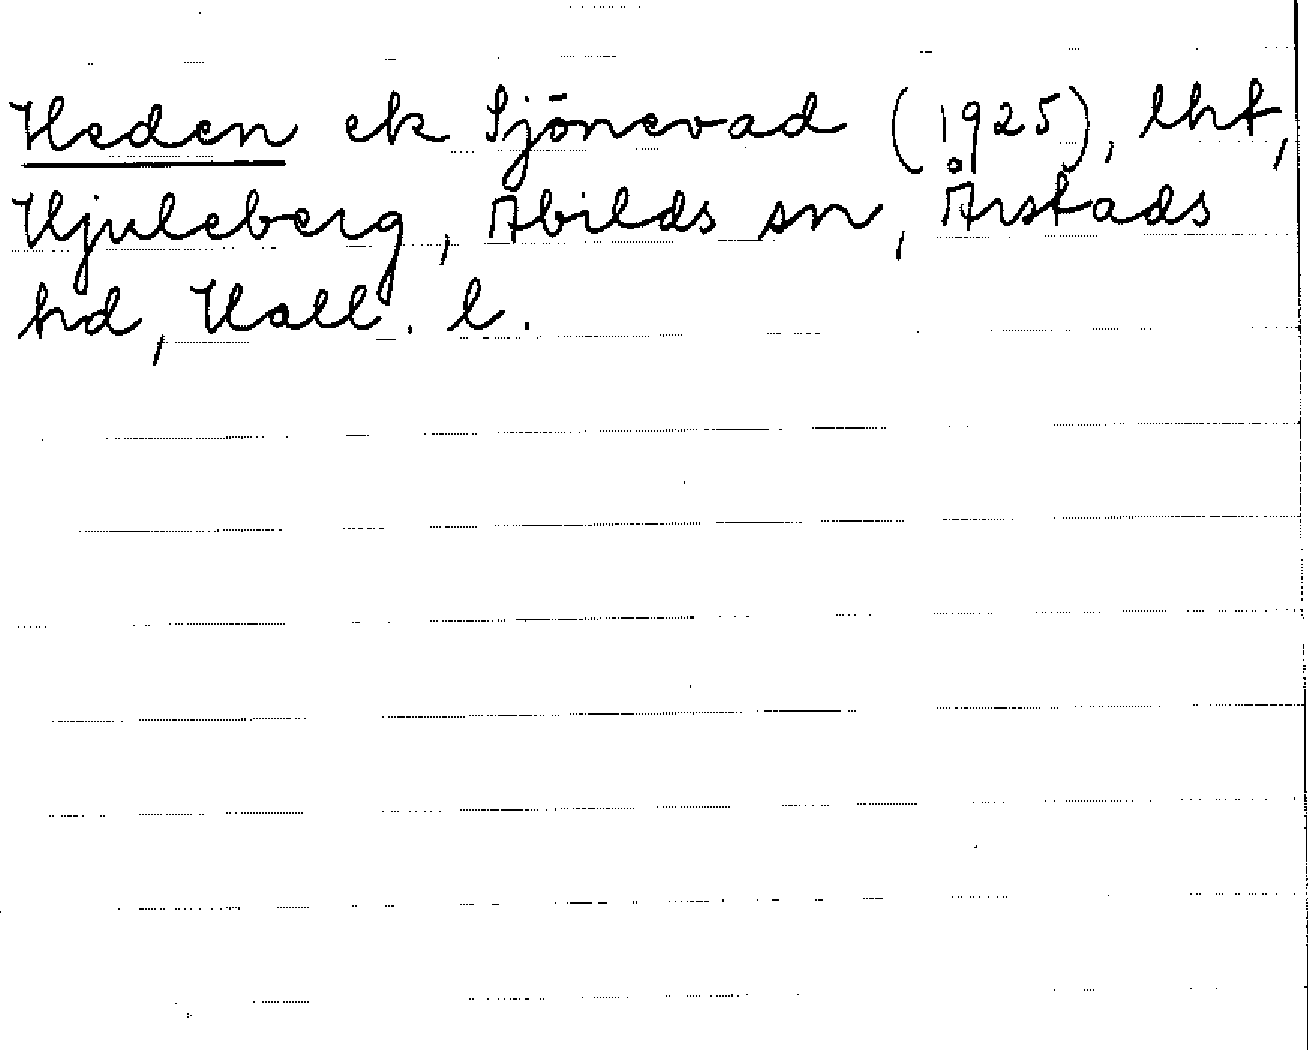 Heden ek Sjönevad (1925), lht,
Hjuleberg, Abilds sn, Årstads
hd, Hall. l.